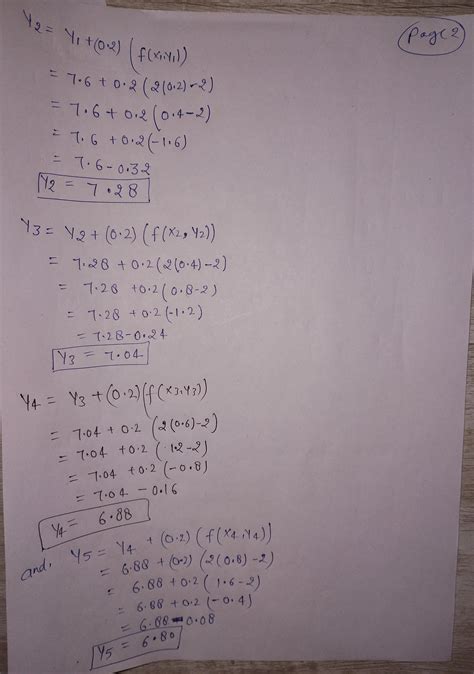 Page 2
Y2 = Y1 + (0.2) (f(x1,y1))
= 7.6 + 0.2 (2(0.2)-2)
= 7.6 + 0.2 (0.4-2)
= 7.6 + 0.2 (-1.6)
= 7.6 - 0.32
Y2 = 7.28
Y3 = Y2 + (0.2) (f(x2, Y2))
= 7.28 + 0.2 (2(0.4)-2)
= 7.28 + 0.2 (0.8-2)
= 7.28 + 0.2 (-1.2)
= 7.28 - 0.24
Y3 = 7.04
Y4 = Y3 + (0.2) (f(x3,y3))
= 7.04 + 0.2 (2(0.6)-2)
= 7.04 + 0.2 (1.2-2)
= 7.04 + 0.2 (-0.8)
= 7.04 - 0.16
Y4 = 6.88
and, Y5 = Y4 + (0.2) (f(x4,y4))
= 6.88 + (0.2) (2(0.8)-2)
= 6.88 + 0.2 (1.6-2)
= 6.88 + 0.2 (-0.4)
= 6.88 - 0.08
Y5 = 6.80